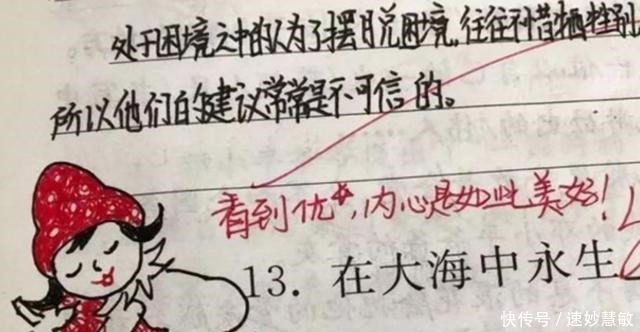 处于困境之中的人为了摆脱困境,往往不惜牺牲别
所以他们的建议常常是不可信的。
看到优*,内心是如此美好!
13. 在大海中永生
快传号/速妙慧敏